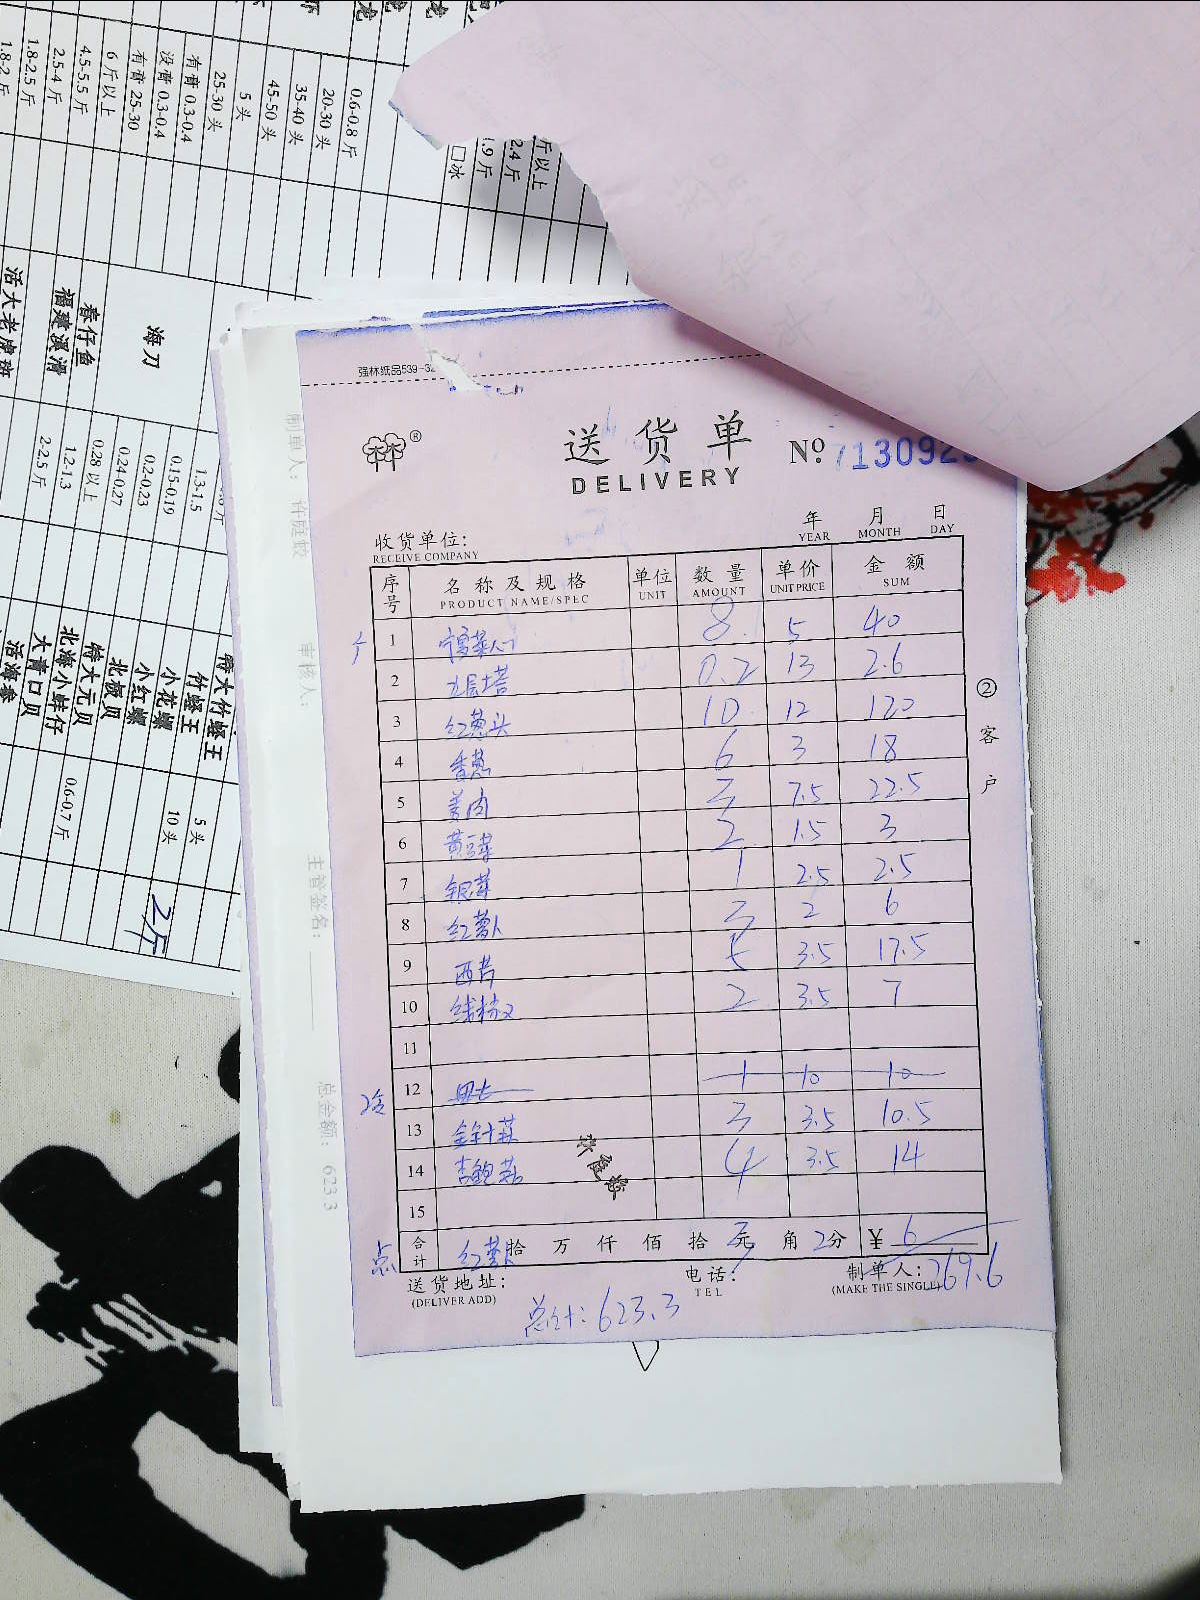 强林纸品539-32
®
送货单
DELIVERY
№ 713092
年 月 日
YEAR MONTH DAY
收货单位:
RECEIVE COMPANY
序号 名称及规格 单位 数量 单价 金额
PRODUCT NAME/SPEC UNIT AMOUNT UNIT PRICE SUM
1 8 5 40
2 九层塔 0.2 13 2.6
3 红葱头 10 12 120
4 香葱 6 3 18
5 姜肉 3 7.5 22.5
6 黄豆芽 2 1.5 3
7 银芽 1 2.5 2.5
8 红萝卜 3 2 6
9 西芹 5 3.5 17.5
10 线椒 2 3.5 7
11
12 1 10 10
13 金针菇 3 3.5 10.5
14 杏鲍菇 4 3.5 14
15
合计 红萝卜 拾 万 仟 佰 拾 元 角 2分 ¥ 6
269.6
送货地址: 电话: 制单人:
(DELIVER ADD) TEL (MAKE THE SINGLE)
总计: 623.3
②客户
点
制单人: 许庭
审核人:
主管签名:
总金额: 623 3
0.6-0.8 斤
20-30 头
35-40 头
45-50 头
5 头
25-30 头
有膏 0.3-0.4
没膏 0.3-0.4
有膏 25-30
6 斤以上
4.5-5.5 斤
2.5-4 斤
1.8-2.5 斤
1.8-2 斤
斤以上
2.4 斤
1.9 斤
□冰
海刀
春仔鱼
福建溪滑
活大老虎斑
1.3-1.5
0.15-0.19
0.2-0.23
0.24-0.27
0.28 以上
1.2-1.3
2-2.5 斤
特大竹蛏王
竹蛏王
小花螺
小红螺
北极贝
特大元贝
北海小蚌仔
大青口贝
活海参
5 头
10 头
0.6-0.7 斤
2斤